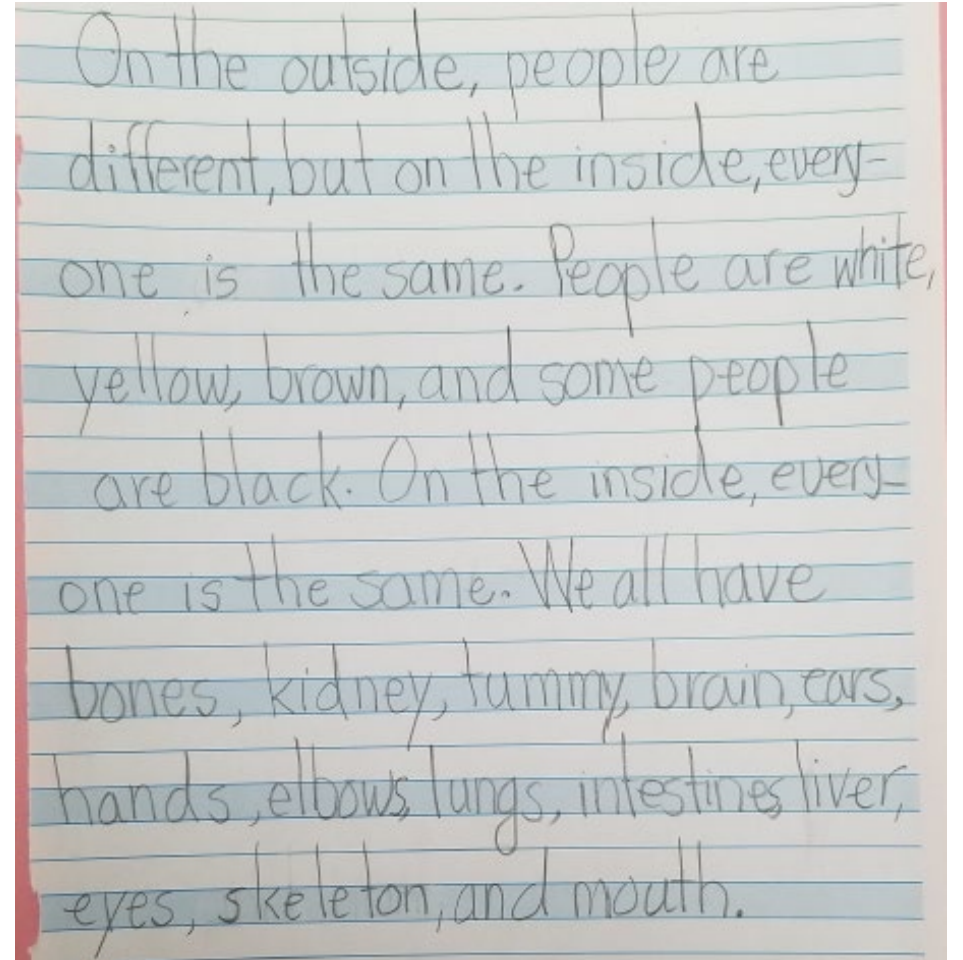 On the outside, people are
different, but on the inside, every-
one is the same. People are white,
yellow, brown, and some people
are black. On the inside, every-
one is the same. We all have
bones, kidney, tummy, brain, ears,
hands, elbows, lungs, intestines, liver,
eyes, skeleton, and mouth.